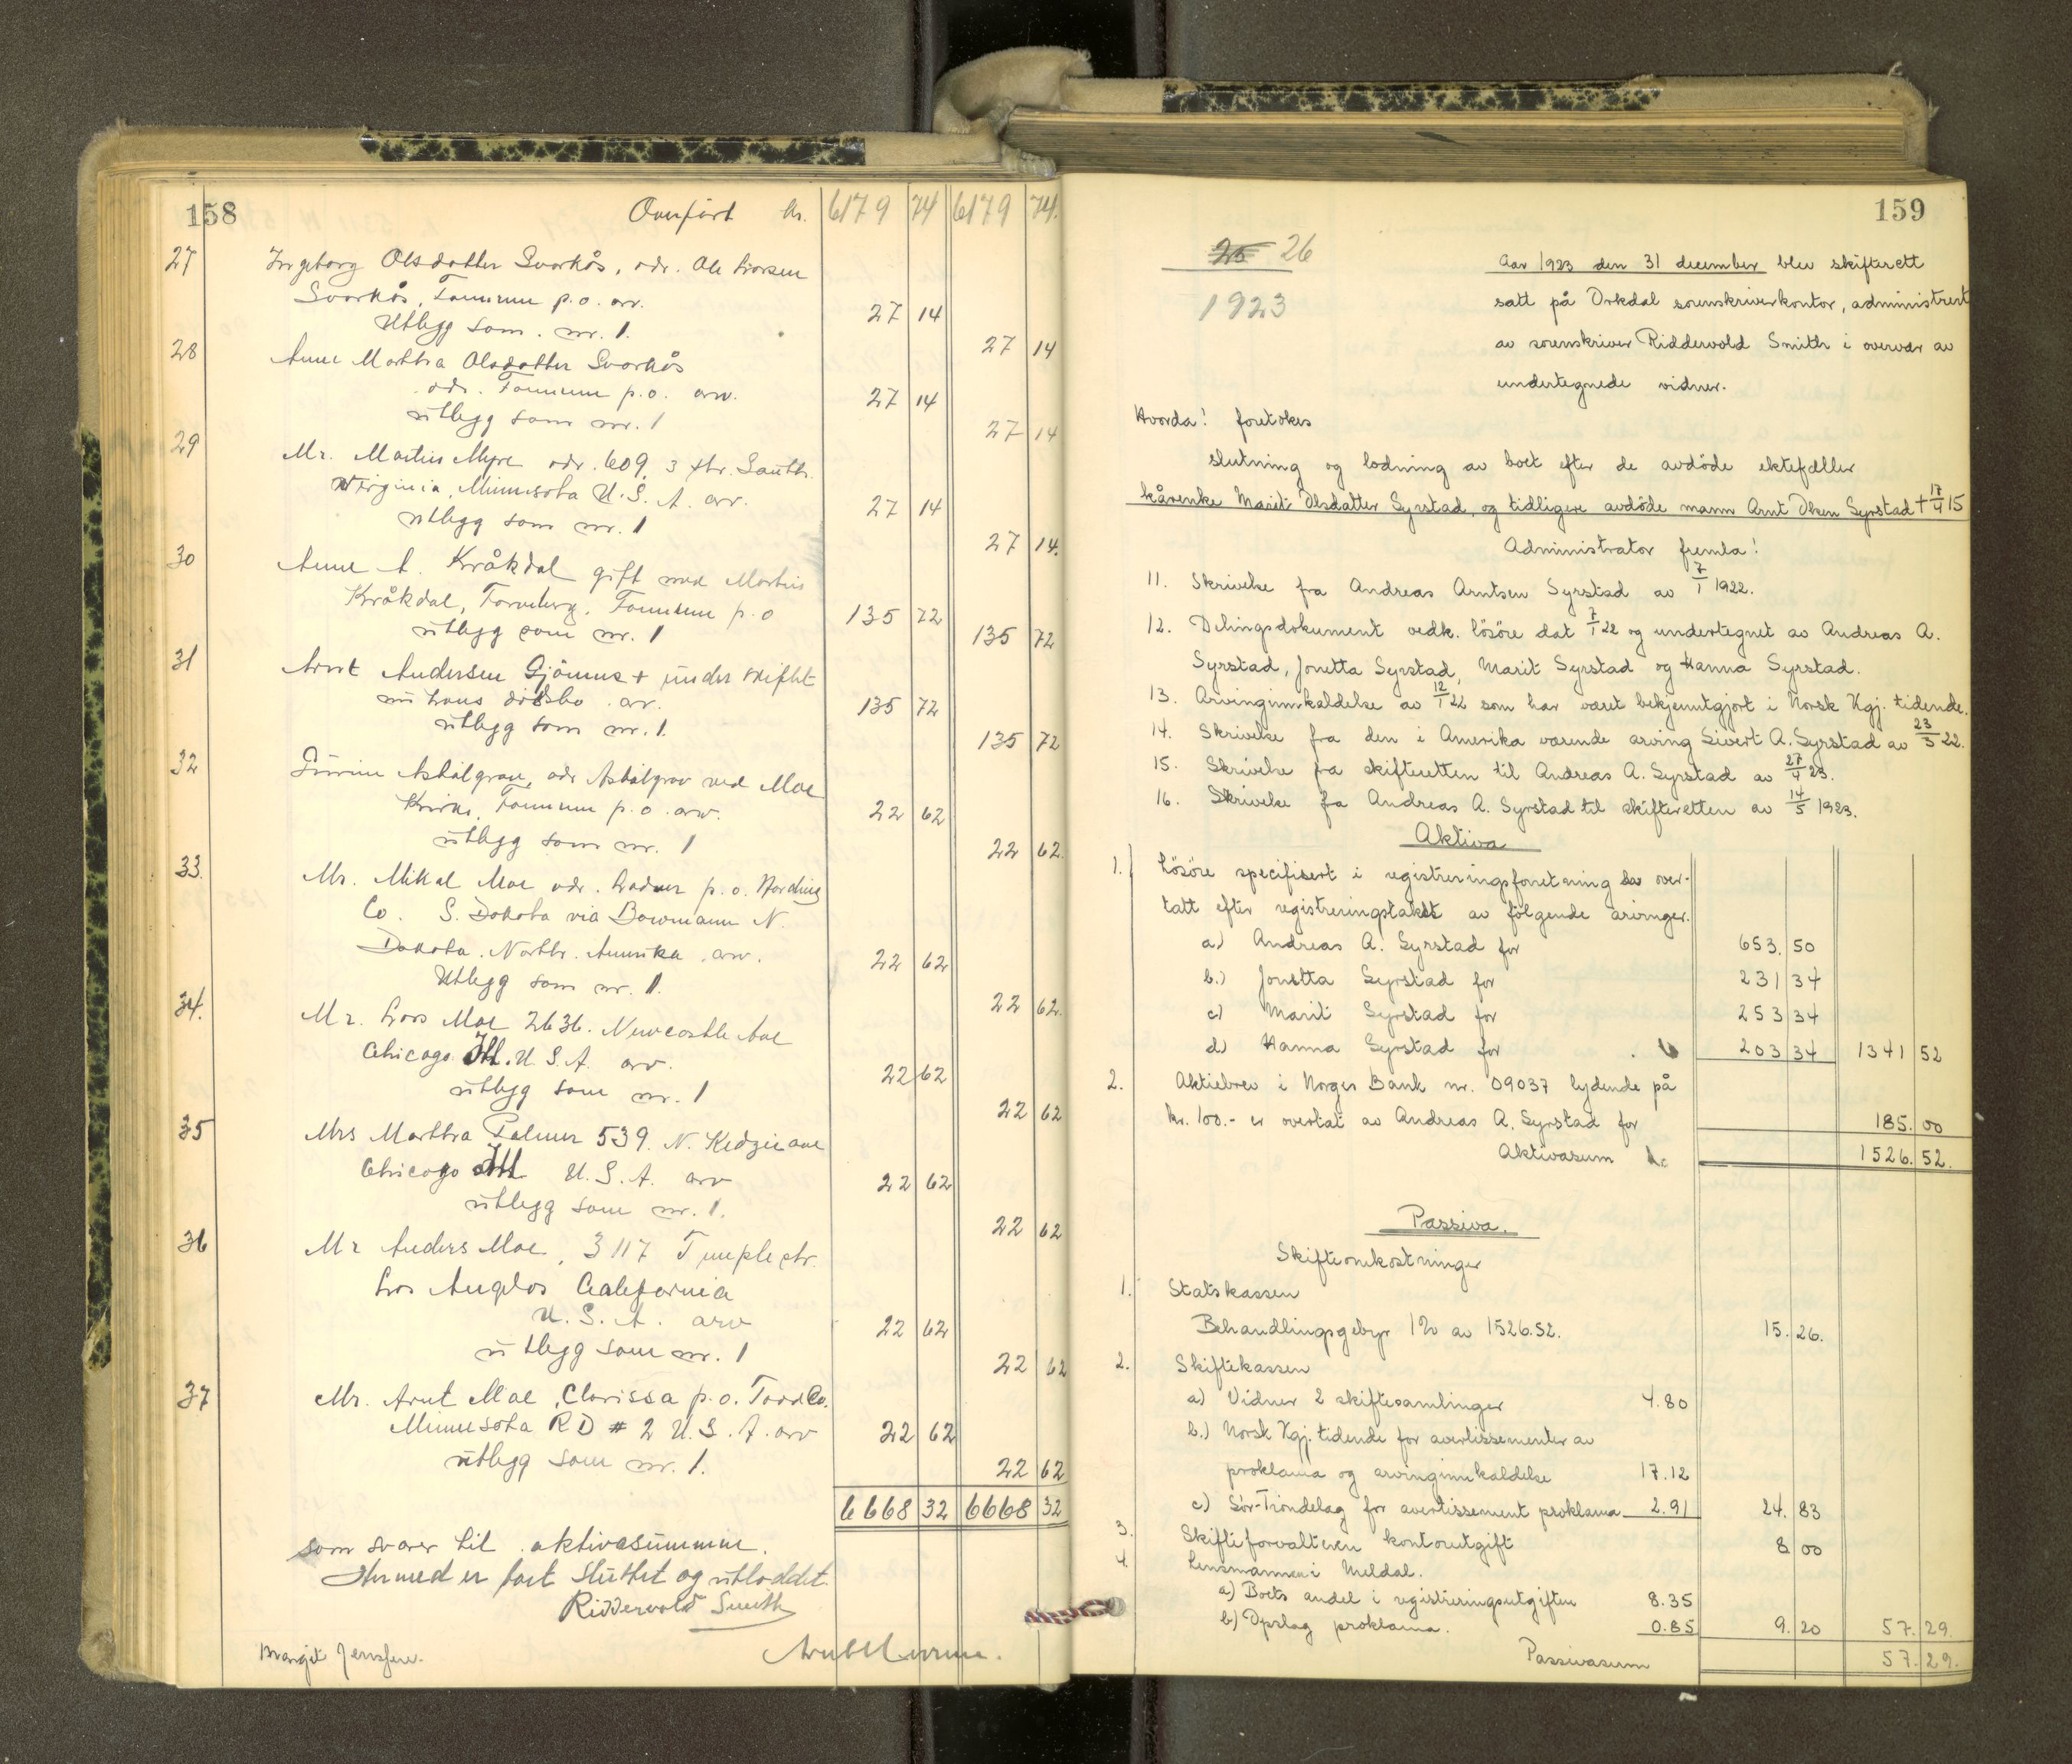 158
Overført kr. 6179 74 6179 74.
27 Ingeborg Olsdatter Svorkås, adr. Ole Larsen
Svorkås, Fannrem p.o. arv. 27 14
Utlegg som nr. 1. 27 14
28 Anne Martha Olsdatter Svorkås
adr. Fannrem p.o. arv. 27 14
utlegg som nr. 1 27 14
29 Mr. Martin Myre adr. 609, 3 str. South.
Virginia, Minnesota U.S.A. arv. 27 14
utlegg som nr. 1 27 14.
30 Anne A. Kråkdal gift med Martin
Kråkdal, Fannrem p.o 135 72
utlegg som nr. 1 135 72
31 Arnt Andersen Gjønnes + under skiftet
nu hans dødsbo arv. 135 72
utlegg som nr. 1. 135 72
32 Asbølgrav ved Moe
Kirke, Fannrem p.o. arv. 22 62
utlegg som nr. 1 22 62.
33. Mr. Mikal Moe adr. Ladner p.o. Harding
Co. S. Dakota via Bowmann N.
Dakota. North. Amerika arv. 22 62
Utlegg som nr. 1. 22 62.
34. Mr. Lars Moe 2636. Newcastle Ave
Chicago Ill. U.S.A. arv. 22 62
utlegg som nr. 1 22 62
35 Mrs Martha Palmer 539. N. Kedzie ave
Chicago Ill. U.S.A. arv 22 62
utlegg som nr. 1. 22 62
36 Mr Anders Moe, 3117 Temple str.
Los Angelos California
U.S.A. arv 22 62
utlegg som nr. 1 22 62
37 Mr. Arnt Moe, Clarissa p.o. Todd Co.
Minnesota RD # 2 U.S.A. arv 22 62
utlegg som nr. 1. 22 62
6668 32 6668 32
som svarer til aktivasummen.
Hermed er boet sluttet og utloddet.
Riddervold Smith
Margit Jenssen.
159
25 26
1923
Aar 1923 den 31 december blev skifterett
satt på Orkdal sorenskriverkontor, administrert
av sorenskriver Riddervold Smith i overvær av
undertegnede vidner.
Hvorda! foretokes
slutning og lodning av boet efter de avdøde ektefæller
kårenke Marit Olsdatter Syrstad, og tidligere avdøde mann Arnt Olsen Syrstad + 17/4 15
Administrator fremla!
11. Skrivelse fra Andreas Arntsen Syrstad av 7/1 1922.
12. Delingsdokument vedk. løsøre dat 7/1 22 og undertegnet av Andreas A.
Syrstad, Jonetta Syrstad, Marit Syrstad og Hanna Syrstad.
13. Arvinginnkaldelse av 12/1 22 som har været bekjenntgjort i Norsk Kgj. tidende.
14. Skrivelse fra den i Amerika værende arving Sivert A. Syrstad av 23/3 22.
15. Skrivelse fra skifteretten til Andreas A. Syrstad av 27/4 23.
16. Skrivelse fra Andreas A. Syrstad til skifteretten av 14/5 1923.
Aktiva
1. Løsøre specifisert i registreringsforretning er over-
tatt efter registreringstakst av følgende arvinger.
a) Andreas A. Syrstad for 653. 50
b.) Jonetta Syrstad for 231 34
c) Marit Syrstad for 253 34
d) Hanna Syrstad for 203 34 1341 52
2. Aktiebrev i Norges Bank nr. 09037 lydende på
kr. 100.- er overtat av Andreas A. Syrstad for 185. 00
Aktivasum kr 1526. 52.
Passiva.
Skifteomkostninger
1. Statskassen
Behandlingsgebyr 1% av 1526.52. 15. 26.
2. Skiftekassen
a) Vidner 2 skiftesamlinger 4.80
b.) Norsk Kgj. tidende for avertissementer av
proklama og arvinginnkaldelse 17.12
c) Sør-Trøndelag for avertissement proklama 2.91 24. 83
3. Skifteforvalteren kontorutgift 8 00
4. Lensmannen i Meldal.
a) Boets andel i registreringsutgiften 8.35
b) Opslag proklama. 0.85 9. 20 57. 29.
Passivasum 57. 29.